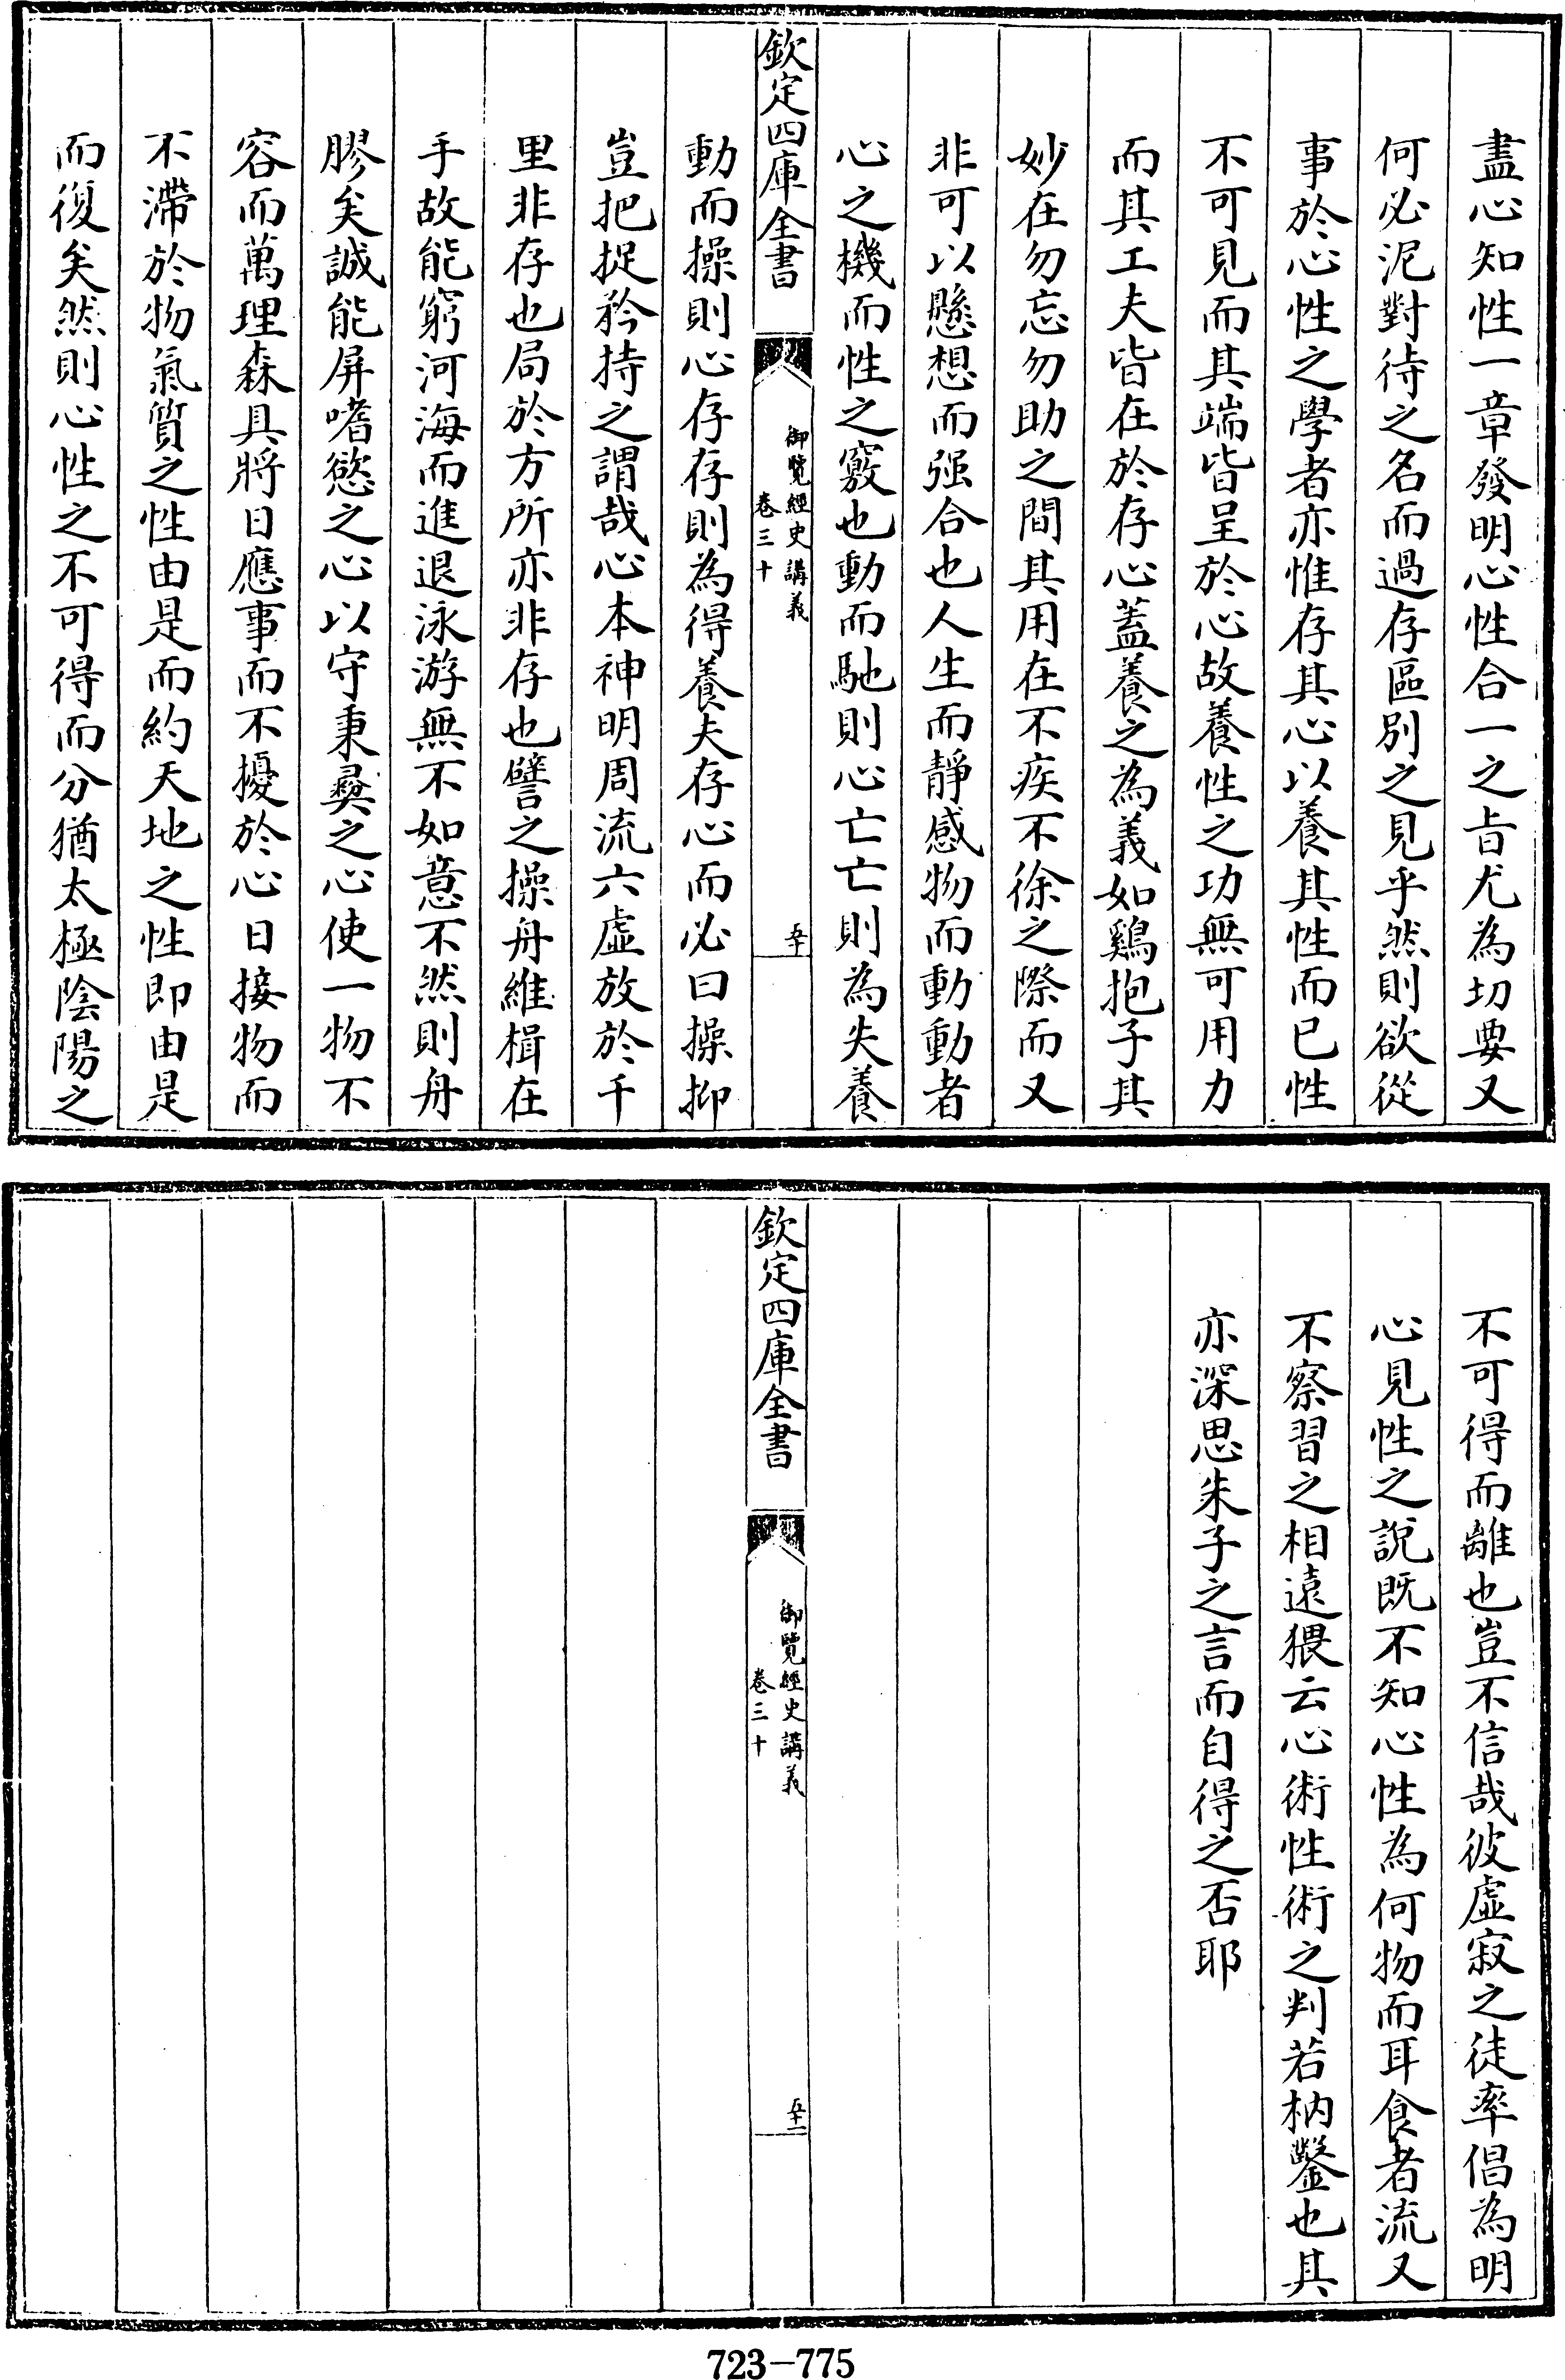 盡心知性一章發明心性合一之旨尤為切要又
何必泥對待之名而過存區別之見乎然則欲從
事於心性之學者亦惟存其心以養其性而已性
不可見而其端皆呈於心故養性之功無可用力
而其工夫皆在於存心蓋養之為義如鷄抱子其
妙在勿忘勿助之間其用在不疾不徐之際而又
非可以懸想而强合也人生而靜感物而動動者
心之機而性之竅也動而馳則心亡亡則為失養
欽定四庫全書
御覽經史講義
卷三十
五十
動而操則心存存則為得養夫存心而必曰操抑
豈把捉矜持之謂哉心本神明周流六虛放於千
里非存也局於方所亦非存也譬之操舟維楫在
手故能窮河海而進退泳游無不如意不然則舟
膠矣誠能屏嗜慾之心以守秉彝之心使一物不
容而萬理森具將日應事而不擾於心日接物而
不滯於物氣質之性由是而約天地之性即由是
而復矣然則心性之不可得而分猶太極陰陽之
不可得而離也豈不信哉彼虛寂之徒率倡為明
心見性之說既不知心性為何物而耳食者流又
不察習之相遠猥云心術性術之判若枘鑿也其
亦深思朱子之言而自得之否耶
欽定四庫全書
御覽經史講義
卷三十
五十一
723-775